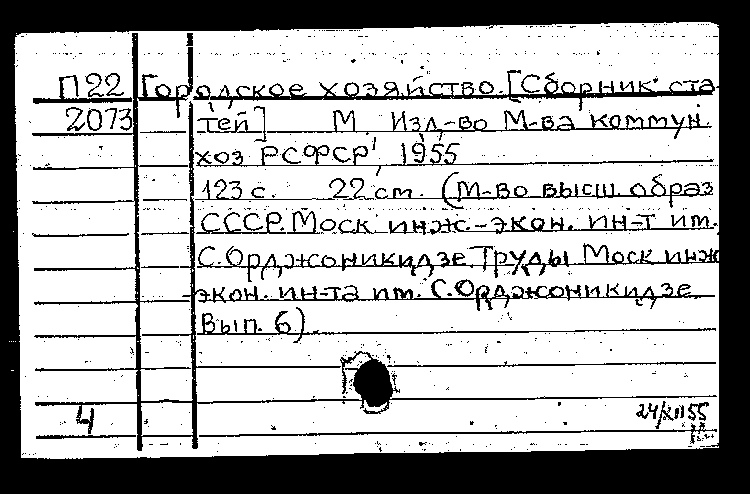 П22 Городское хозяйство. [Сборник ста-
2073 тей] М. Изд-во М-ва коммун.
хоз РСФСР, 1955
123 с. 22 см. (М-во высш. образ
СССР. Моск инж.-экон. ин-т им.
С. Орджоникидзе. Труды Моск инж
экон. ин-та им. С. Орджоникидзе.
Вып. 6).
4 24/XII 55